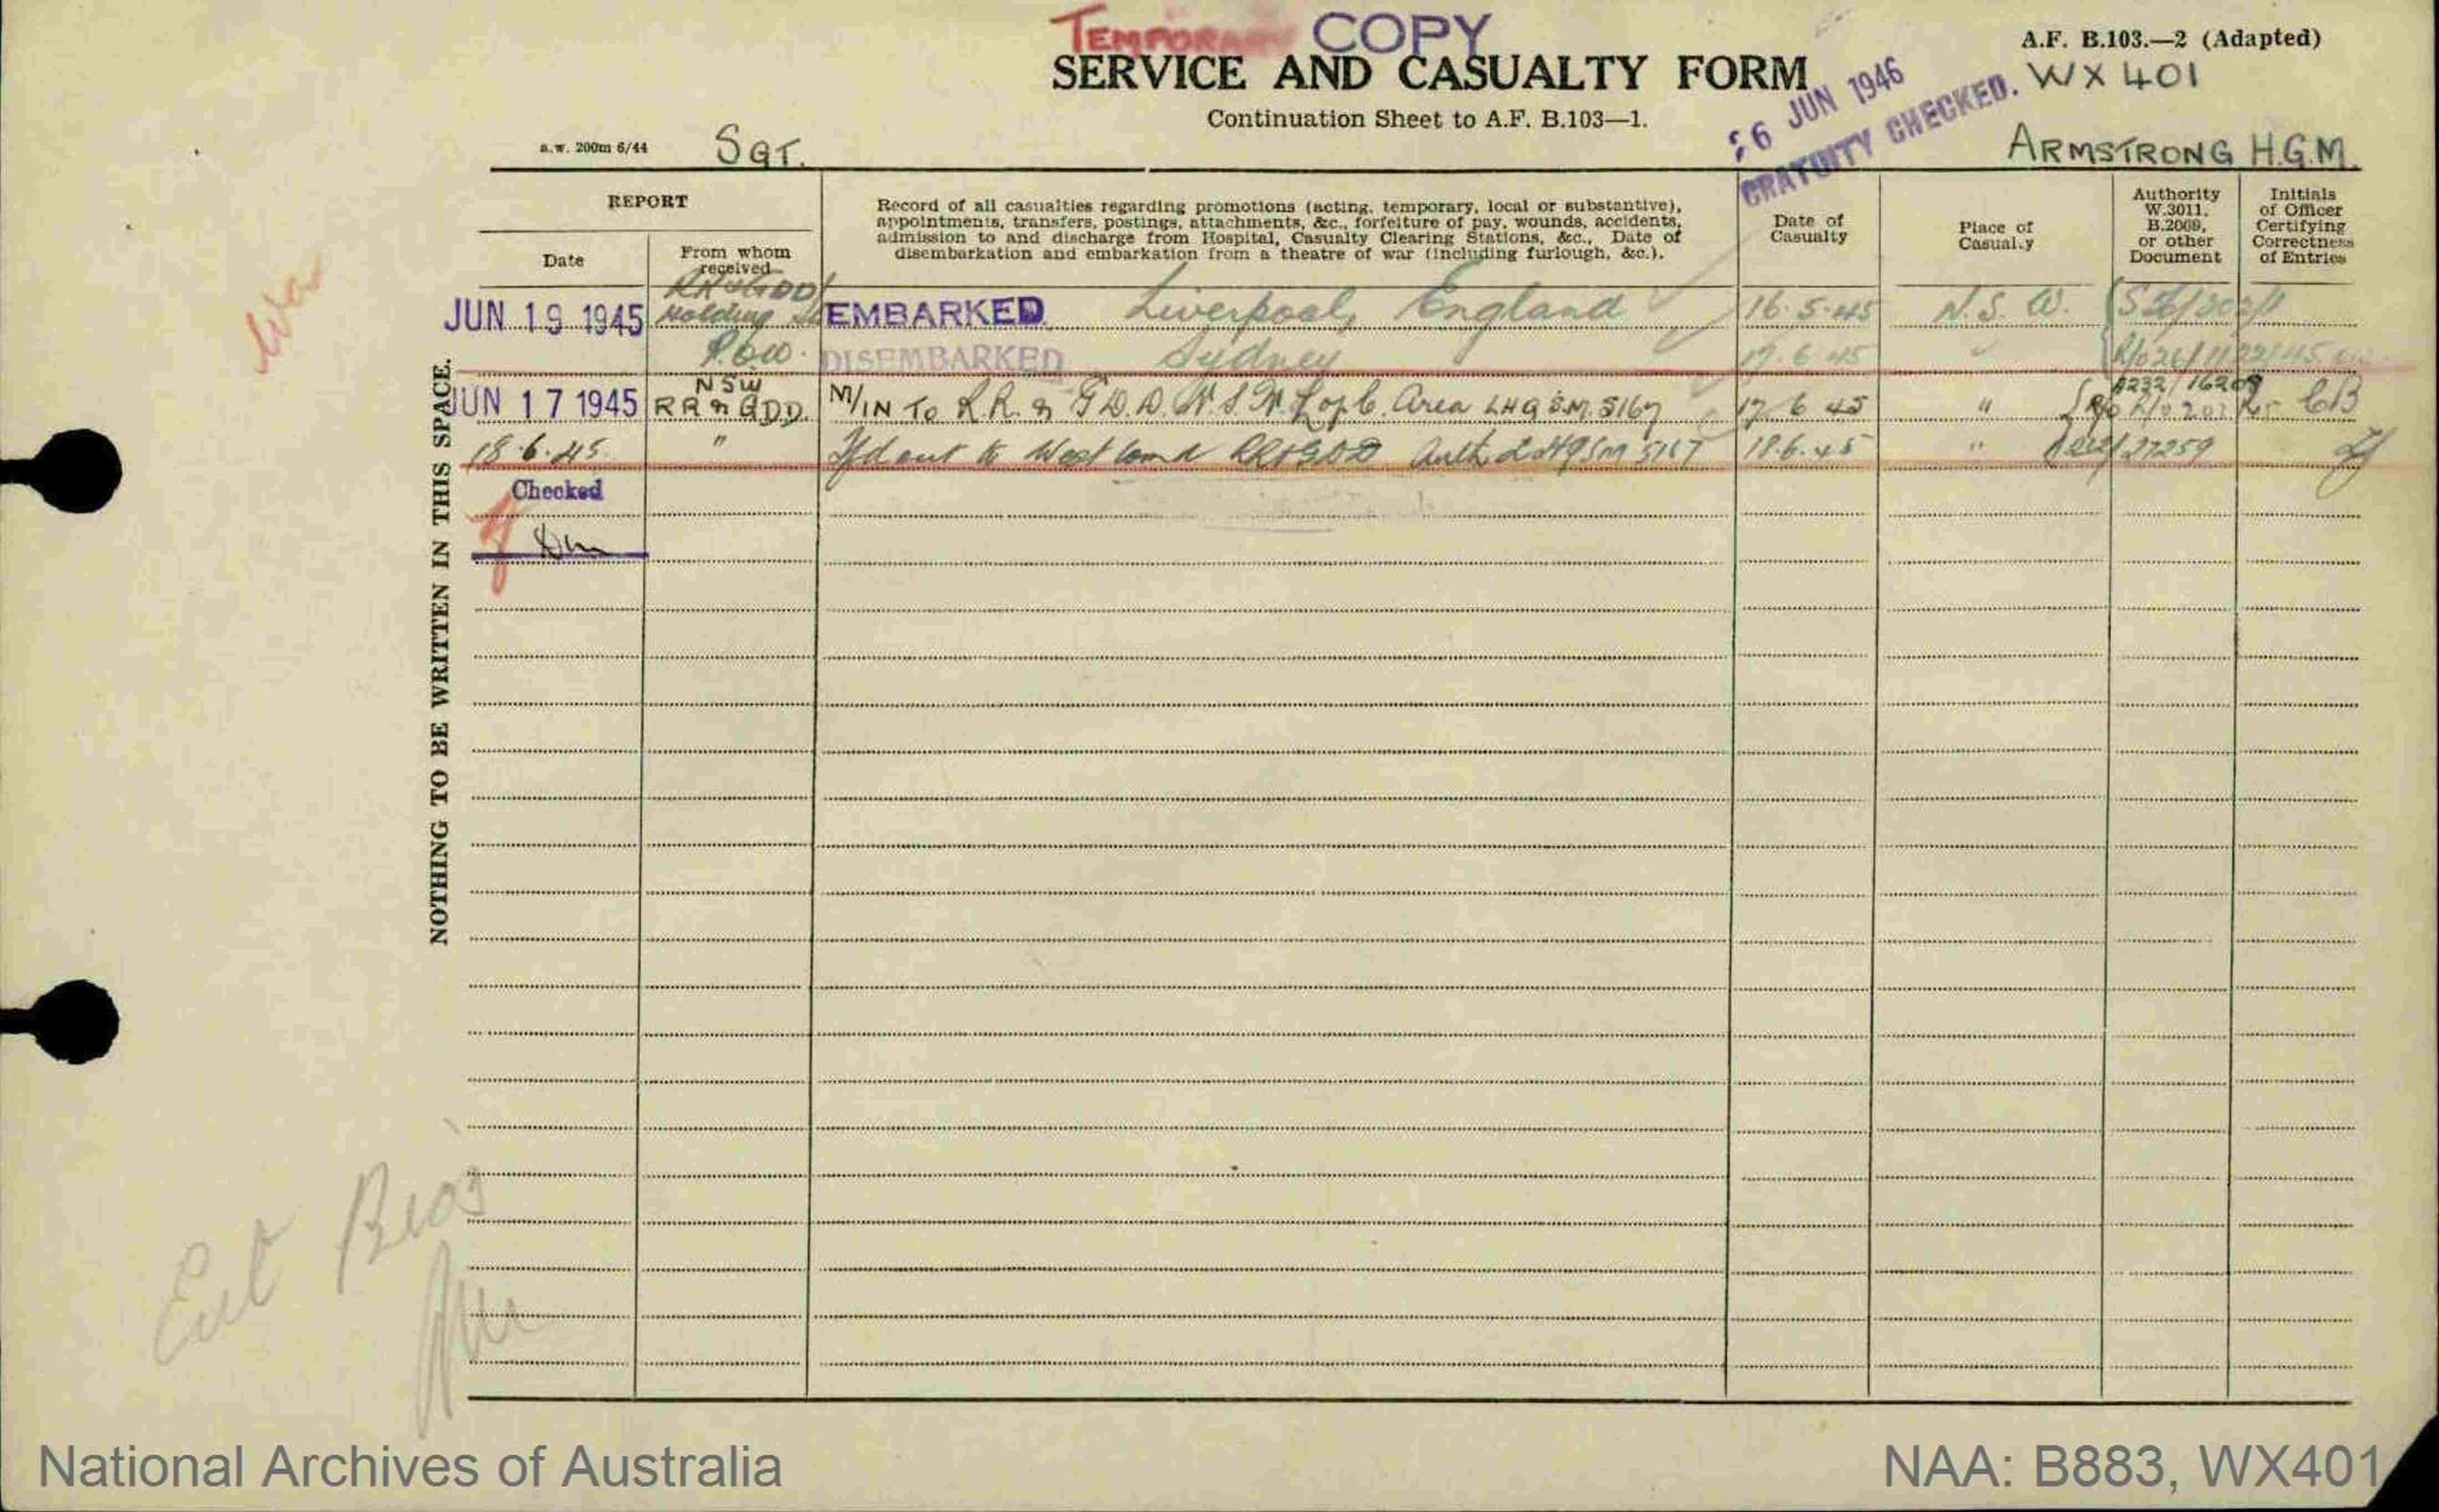 TEMPORARY COPY
A.F. B.103.—2 (Adapted)
SERVICE AND CASUALTY FORM
WX 401
Continuation Sheet to A.F. B.103—1.
26 JUN 1946
GRATUITY CHECKED.
a.w. 200m 6/44
SGT.
ARMSTRONG H.G.M.
REPORT
Date
From whom received
Record of all casualties regarding promotions (acting, temporary, local or substantive),
appointments, transfers, postings, attachments, &c., forfeiture of pay, wounds, accidents,
admission to and discharge from Hospital, Casualty Clearing Stations, &c., Date of
disembarkation and embarkation from a theatre of war (including furlough, &c.).
Date of Casualty
Place of Casual.y
Authority W.3011, B.2069, or other Document
Initials of Officer Certifying Correctness of Entries
JUN 19 1945 Holding EMBARKED Liverpool, England 16.5.45 N.S.W.
P.O.W. DISEMBARKED Sydney 17.6.45
JUN 17 1945 NSW RR & GDD. M/IN To R.R. & G.D.D. N.S.W. L of C. Area LHQ S.M. 5167 17.6.45 " CB
18.6.45 " out to West Comd RR&GDD Auth LHQ SM 5167 18.6.45 " 27259
Checked
NOTHING TO BE WRITTEN IN THIS SPACE.
National Archives of Australia
NAA: B883, WX401